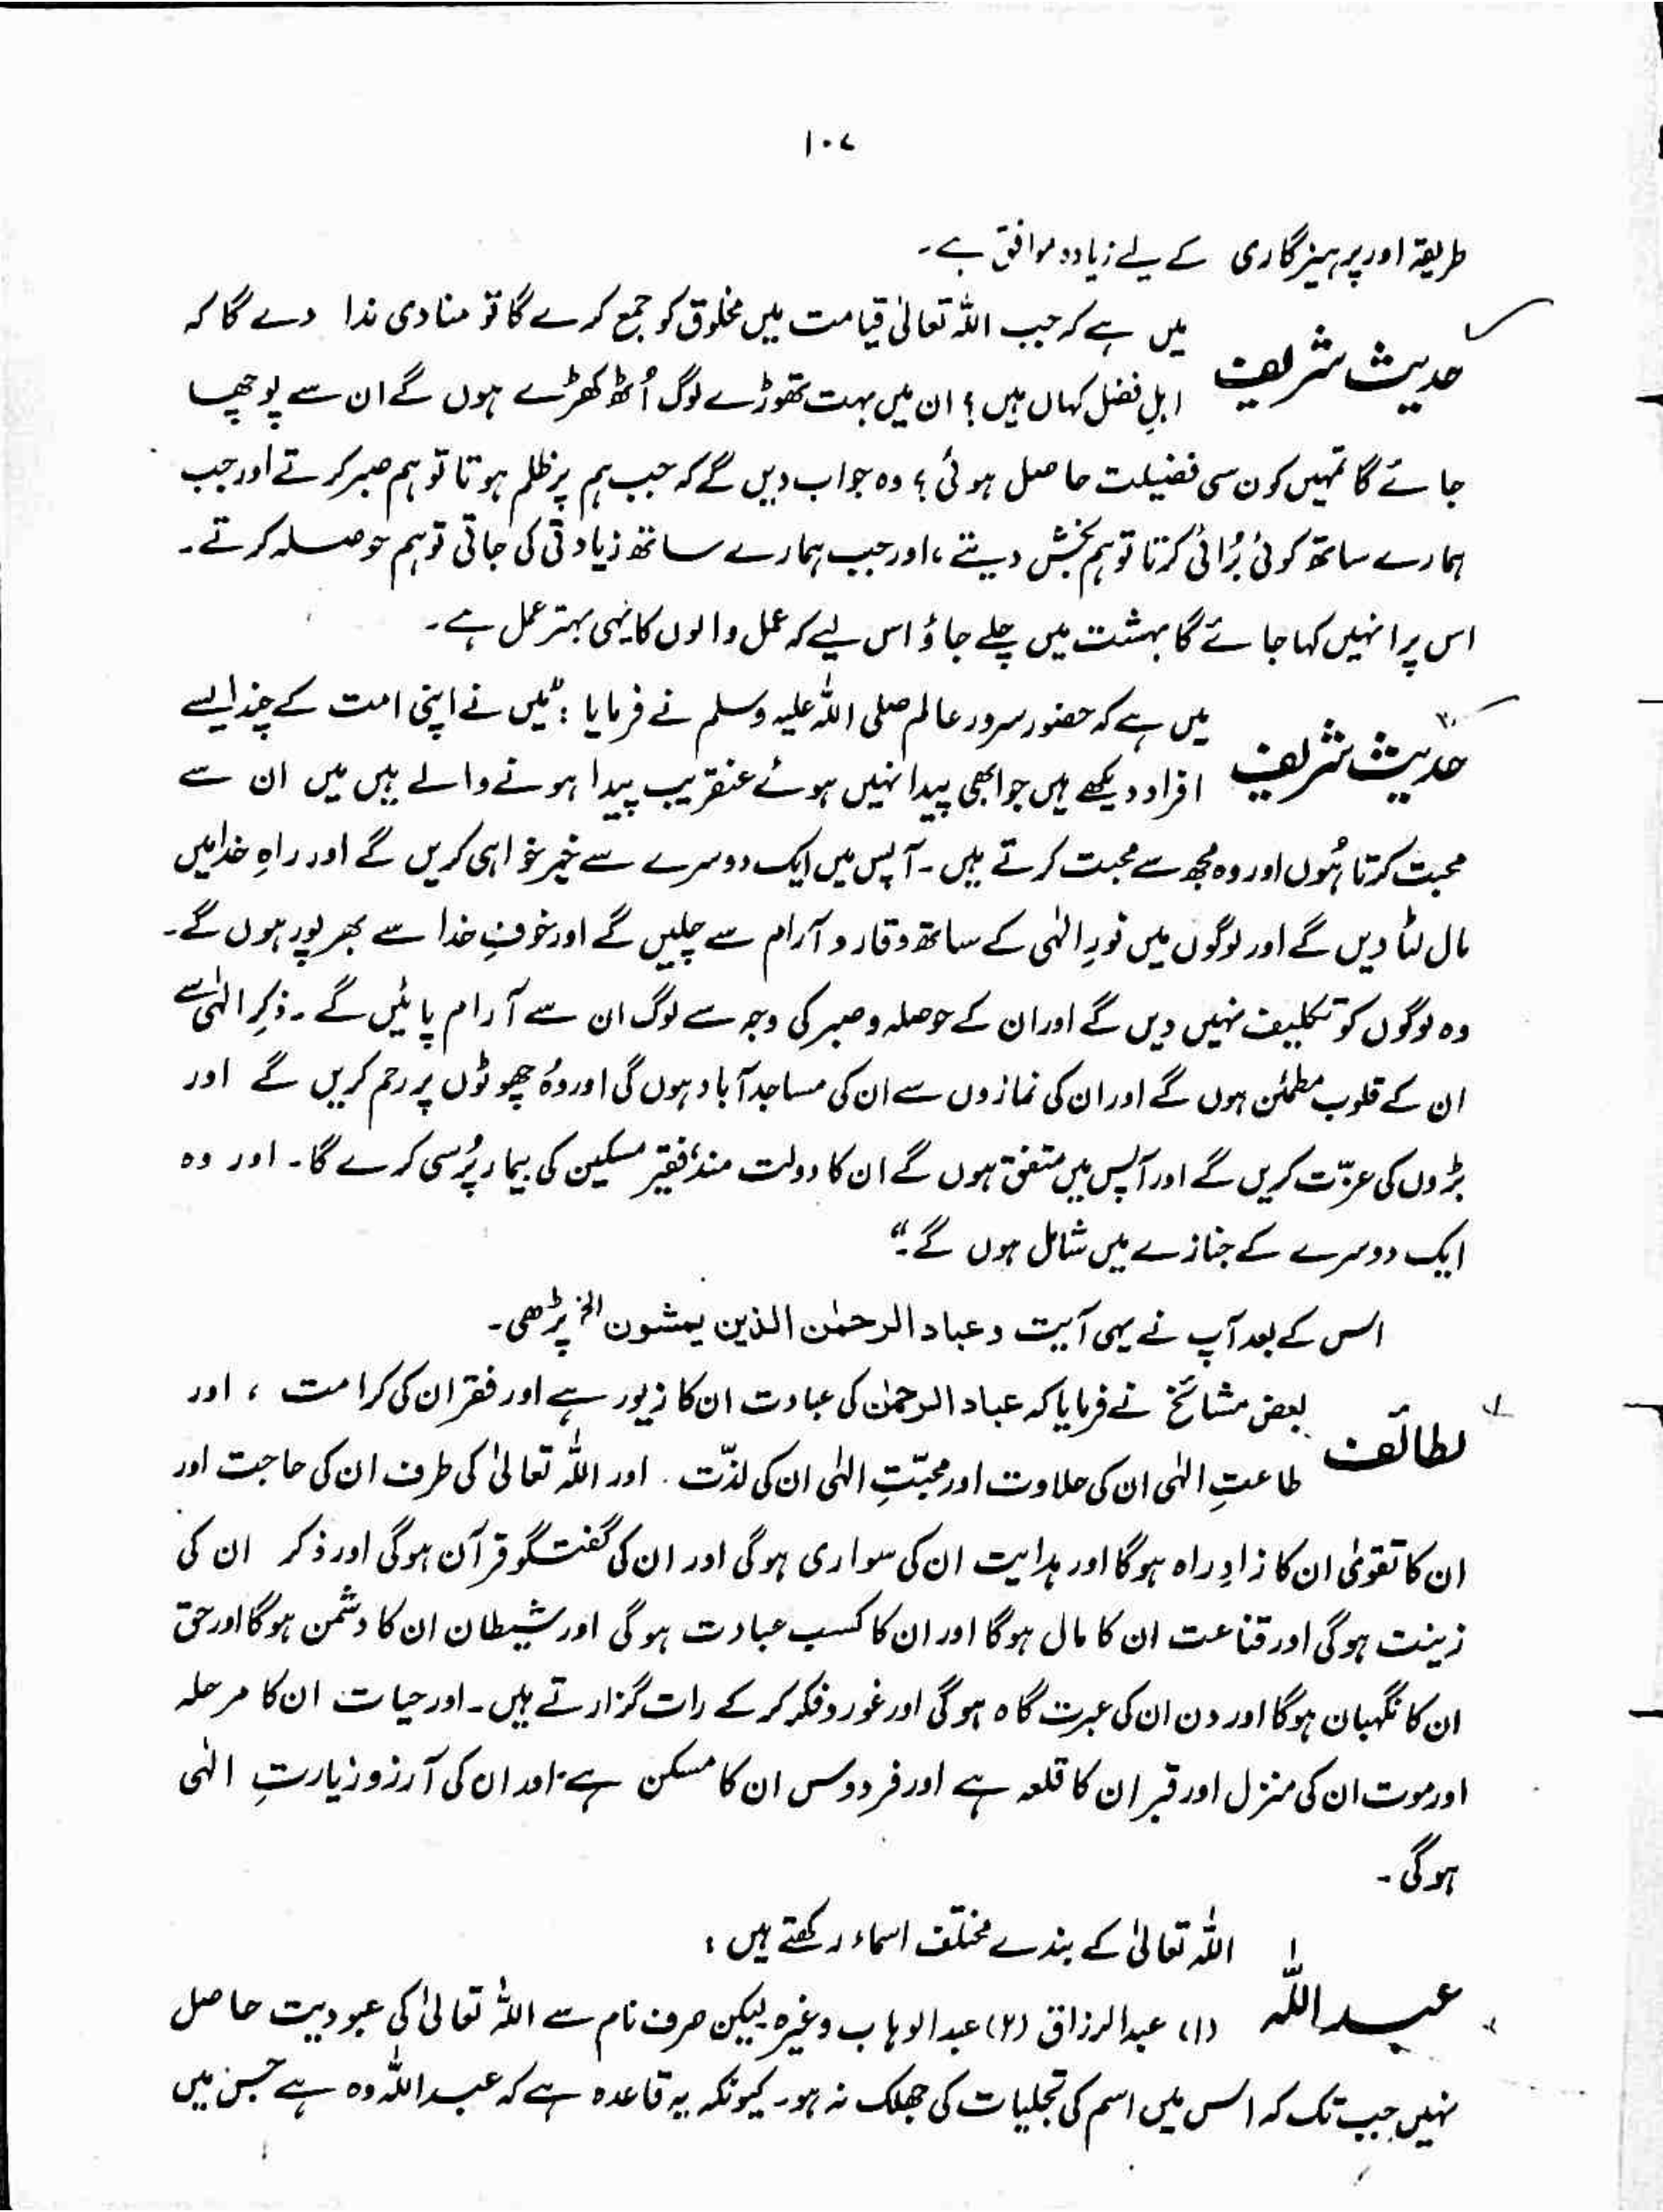 ۱۰۷
طریقہ اور پرہیزگاری کے لیے زیادہ موافق ہے۔
حدیث شریف میں ہے کہ جب اللہ تعالیٰ قیامت میں مخلوق کو جمع کرے گا تو منادی ندا دے گا کہ
اہلِ فضل کہاں ہیں؟ ان میں بہت تھوڑے لوگ اُٹھ کھڑے ہوں گے ان سے پوچھا
جائے گا تمہیں کون سی فضیلت حاصل ہوئی؟ وہ جواب دیں گے کہ جب ہم پر ظلم ہوتا تو ہم صبر کرتے اور جب
ہمارے ساتھ کوئی بُرائی کرتا تو ہم بخش دیتے، اور جب ہمارے ساتھ زیادتی کی جاتی تو ہم حوصلہ کرتے۔
اس پر انہیں کہا جائے گا بہشت میں چلے جاؤ اس لیے کہ عمل والوں کا یہی بہتر عمل ہے۔
حدیث شریف میں ہے کہ حضور سرور عالم صلی اللہ علیہ وسلم نے فرمایا: "میں نے اپنی امت کے چند ایسے
افراد دیکھے ہیں جو ابھی پیدا نہیں ہوئے عنقریب پیدا ہونے والے ہیں میں ان سے
محبت کرتا ہُوں اور وہ مجھ سے محبت کرتے ہیں۔ آپس میں ایک دوسرے سے خیر خواہی کریں گے اور راہِ خدا میں
مال لٹا دیں گے اور لوگوں میں نورِ الٰہی کے ساتھ وقار و آرام سے چلیں گے اور خوفِ خدا سے بھرپور ہوں گے۔
وہ لوگوں کو تکلیف نہیں دیں گے اور ان کے حوصلہ و صبر کی وجہ سے لوگ ان سے آرام پائیں گے۔ ذکرِ الٰہی سے
ان کے قلوب مطمئن ہوں گے اور ان کی نمازوں سے ان کی مساجد آباد ہوں گی اور وُہ چھوٹوں پر رحم کریں گے اور
بڑوں کی عزّت کریں گے اور آپس میں متفق ہوں گے ان کا دولت مند، فقیر مسکین کی بیمار پُرسی کرے گا۔ اور وہ
ایک دوسرے کے جنازے میں شامل ہوں گے۔"
اس کے بعد آپ نے یہی آیت وعباد الرحمٰن الذین یمشون الخ پڑھی۔
لطائف بعض مشائخ نے فرمایا کہ عباد الرحمٰن کی عبادت ان کا زیور ہے اور فقر ان کی کرامت ، اور
طاعتِ الٰہی ان کی حلاوت اور محبّتِ الٰہی ان کی لذّت۔ اور اللہ تعالیٰ کی طرف ان کی حاجت اور
ان کا تقویٰ ان کا زادِ راہ ہوگا اور ہدایت ان کی سواری ہوگی اور ان کی گفتگو قرآن ہوگی اور ذکر ان کی
زینت ہوگی اور قناعت ان کا مال ہوگا اور ان کا کسب عبادت ہوگی اور شیطان ان کا دشمن ہوگا اور حق
ان کا نگہبان ہوگا اور دن ان کی عبرت گاہ ہوگی اور غور و فکر کر کے رات گزارتے ہیں۔ اور حیات ان کا مرحلہ
اور موت ان کی منزل اور قبر ان کا قلعہ ہے اور فردوس ان کا مسکن ہے، اور ان کی آرزو زیارتِ الٰہی
ہوگی۔
عبد اللہ اللہ تعالیٰ کے بندے مختلف اسماء رکھتے ہیں:
(۱) عبدالرزاق (۲) عبدالوہاب وغیرہ لیکن صرف نام سے اللہ تعالیٰ کی عبودیت حاصل
نہیں جب تک کہ اس میں اسم کی تجلیات کی جھلک نہ ہو۔ کیونکہ یہ قاعدہ ہے کہ عبد اللہ وہ ہے جس میں